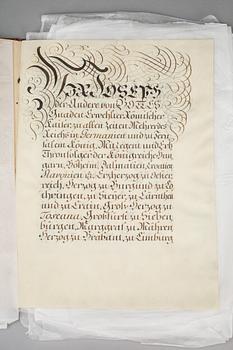 Wir Joseph
der Andere von GOTTES
Gnaden Erwehlter Römischer
Kaiser, zu allen Zeiten Mehrer des
Reichs, in Germanien und zu Jeru
salem König, Mit Regent und Erb
Thronfolger der Königreiche Hun
garn, Böheim, Dalmatien, Croatien
Slavonien &c. Erzherzog zu Oester
reich, Herzog zu Burgund zu Lo
thringen, zu Steyer, zu Cärnthen
und zu Crain, Groß-Herzog zu
Toscana, Großfürst zu Sieben
bürgen, Marggraf zu Mähren
Herzog zu Braband, zu Limburg